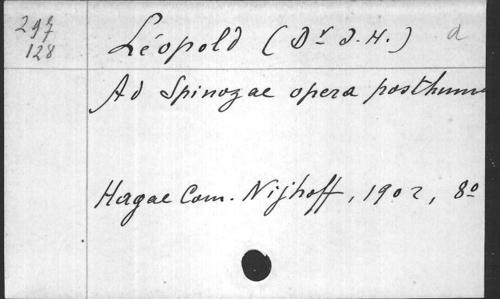 297
128
Léopold (Dr J. H.) a
Ad Spinozae opera posthuma
Hagae Com. Nijhoff, 1902, 8o